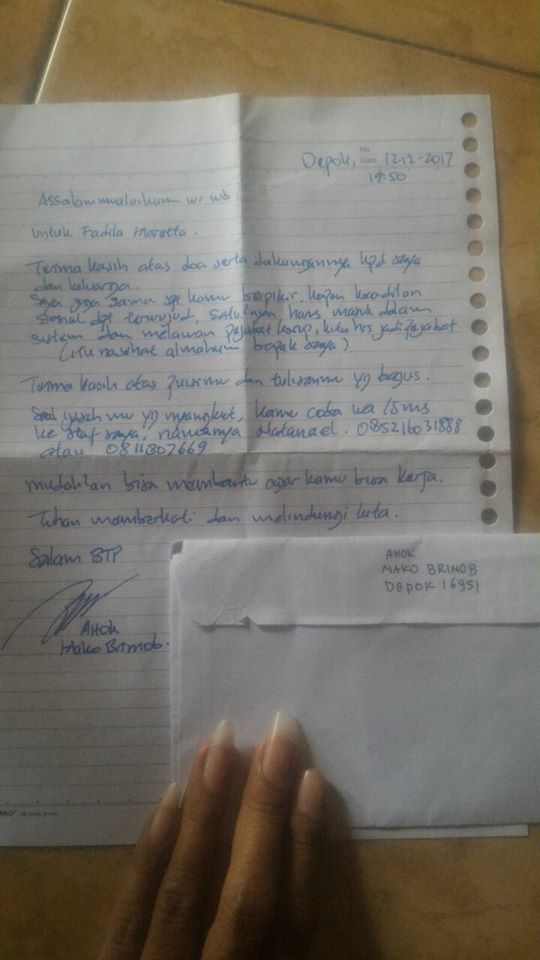 No
Date
Depok, 12-12-2017
19:50
Assalammualaikum wr wb.
Untuk Fadila Maretta.
Terima kasih atas doa serta dukungannya kpd saya
dan keluarga.
Saya juga sama spt kamu berpikir, kapan keadilan
sosial dpt terwujud, satu2nya harus masuk dalam
sistem dan melawan pejabat korup, kita hrs jadi pejabat
(itu nasehat almarhum bapak saya)
Terima kasih atas puisimu dan tulisanmu yg bagus.
Soal ijasah mu yg nyangkut, kamu coba wa/sms
ke staf saya, namanya Natanael. 085216031888
atau 0811807669
mudah2an bisa membantu agar kamu bisa kerja.
Tuhan memberkati dan melindungi kita.
Salam BTP
AHOK
Mako Brimob.
AHOK
MAKO BRIMOB
DEPOK 16951